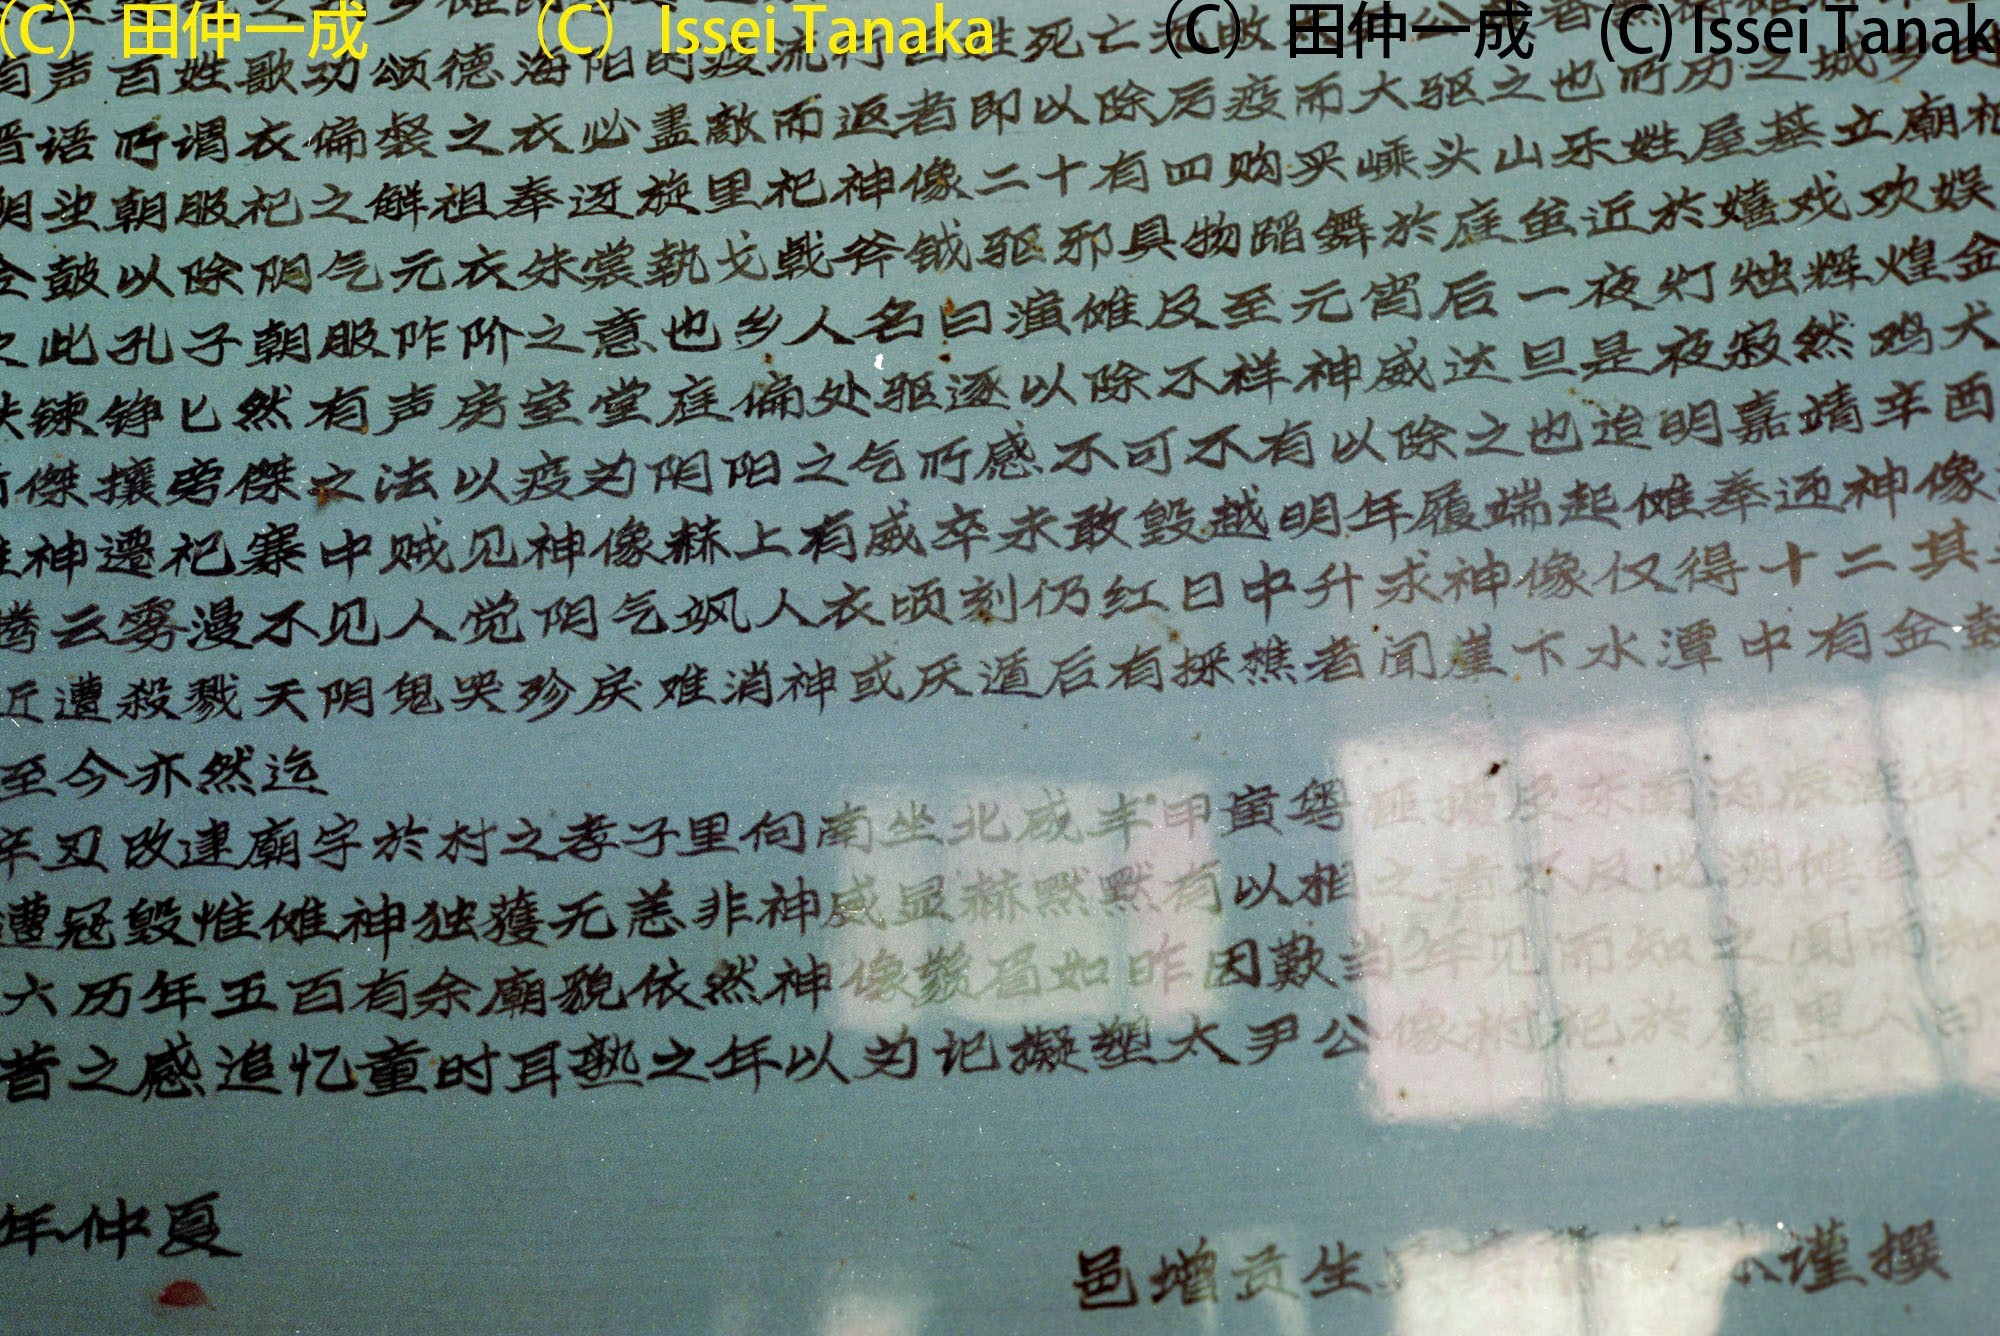 (C) 田仲一成 (C) Issei Tanaka (C) 田仲一成 (C) Issei Tanak
有声百姓歌功颂德海阳时疫流行百姓死亡无敢
晋语所谓衣偏裻之衣必盡敵而返者即以除厉疫而大驱之也所历之城乡
朔望朝服祀之解祖奉迓旋里祀神像二十有四购买嵊头山乐姓屋基立廟
金鼓以除阴气元衣朱裳執戈戟斧钺驱邪具物蹈舞於庭虽近於嬉戏欢娱
此孔子朝服阼阶之意也乡人名曰演傩及至元宵后一夜灯烛辉煌金
铁鍊铮匕然有声房室堂庭偏处驱逐以除不祥神威达旦是夜寂然鸡犬
傑攘旁傑之法以疫为阴阳之气所感不可不有以除之也迨明嘉靖辛酉
神遷祀寨中贼见神像赫上有威卒未敢毁越明年履端起傩奉迊神像
腾云雾漫不见人觉阴气飒人衣顷刻仍红日中升求神像仅得十二其
近遭殺戮天阴鬼哭殄戾难消神或厌遁后有採樵者闻崖下水潭中有金鼓
至今亦然迄
年丑改建廟宇於村之孝子里向南坐北咸丰甲寅粤匪
遭冦毁惟傩神独獲无恙非神威显赫默默有以相之者不及此
六历年五百有余廟貌依然神像鬚眉如昨因歎当年见而知之闻而知
昔之感追忆童时耳熟之年以为记擬塑太尹公像祔祀於廟里人
年仲夏
邑增贡生 谨撰